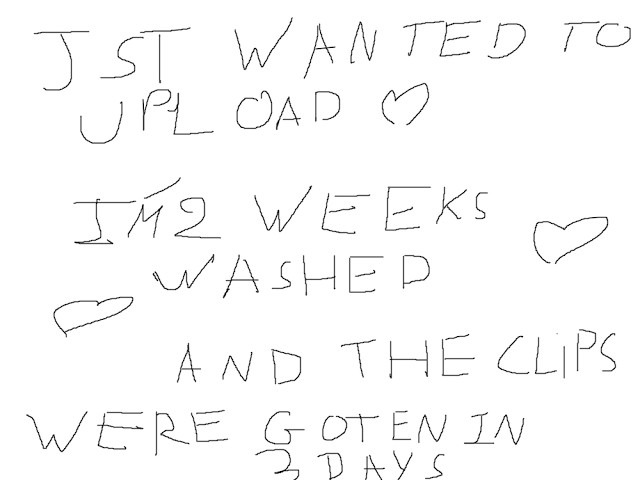 JST WANTED TO
UPLOAD
I'M 2 WEEKS
WASHED
AND THE CLiPS
WERE GOTEN IN
3 DAYS